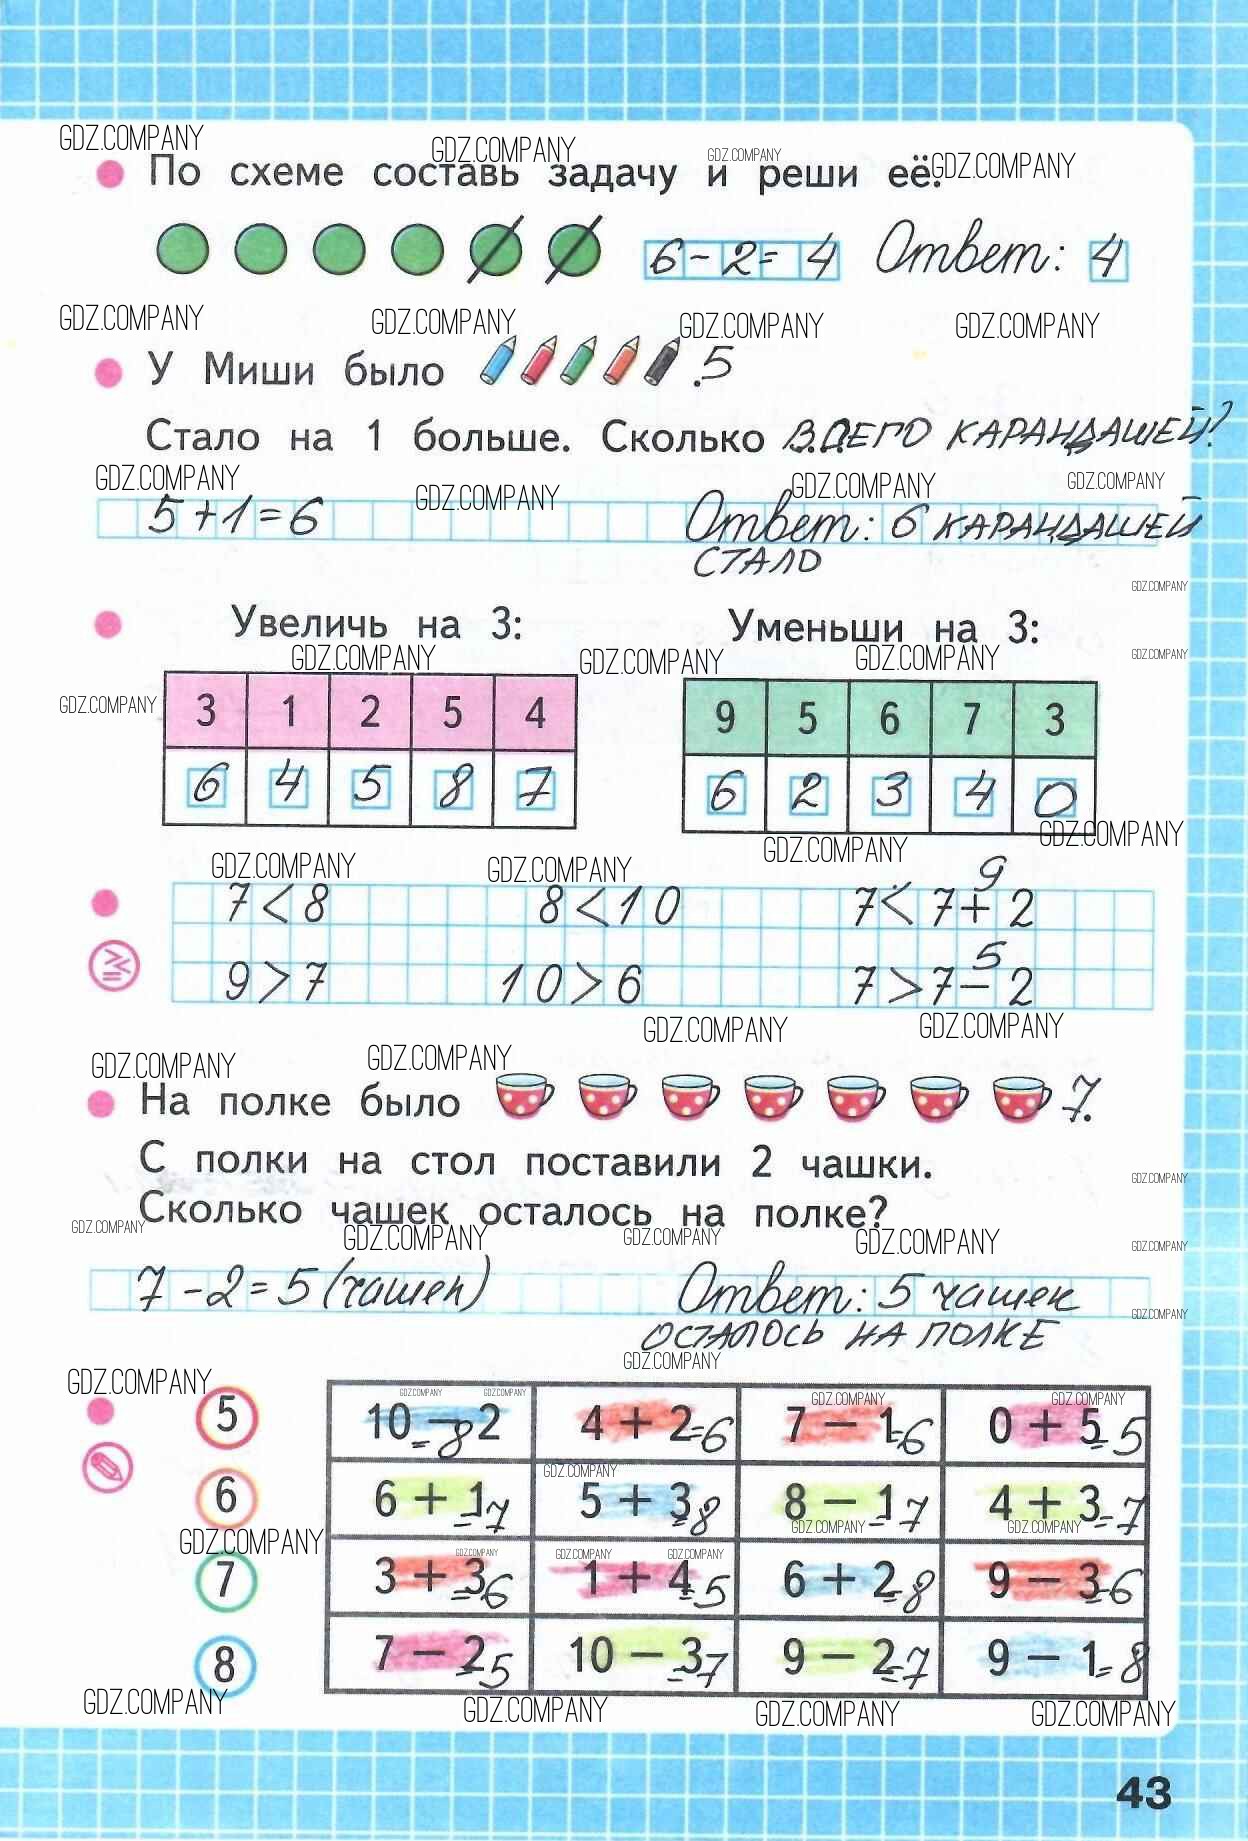 GDZ.COMPANY GDZ.COMPANY GDZ.COMPANY GDZ.COMPANY
По схеме составь задачу и реши её.
6-2=4 Ответ: 4
GDZ.COMPANY GDZ.COMPANY GDZ.COMPANY GDZ.COMPANY
У Миши было .5
Стало на 1 больше. Сколько ВСЕГО КАРАНДАШЕЙ?
GDZ.COMPANY GDZ.COMPANY GDZ.COMPANY GDZ.COMPANY
5+1=6 Ответ: 6 КАРАНДАШЕЙ
СТАЛО
GDZ.COMPANY
Увеличь на 3: Уменьши на 3:
GDZ.COMPANY GDZ.COMPANY GDZ.COMPANY GDZ.COMPANY
GDZ.COMPANY
3 1 2 5 4 9 5 6 7 3
6 4 5 8 7 6 2 3 4 0
GDZ.COMPANY GDZ.COMPANY GDZ.COMPANY GDZ.COMPANY
9
7<8 8<10 7<7+2
5
9>7 10>6 7>7-2
GDZ.COMPANY GDZ.COMPANY GDZ.COMPANY GDZ.COMPANY
На полке было 7.
С полки на стол поставили 2 чашки.
GDZ.COMPANY
Сколько чашек осталось на полке?
GDZ.COMPANY GDZ.COMPANY GDZ.COMPANY GDZ.COMPANY GDZ.COMPANY
7-2=5 (чашек) Ответ: 5 чашек
GDZ.COMPANY
ОСТАЛОСЬ НА ПОЛКЕ
GDZ.COMPANY
GDZ.COMPANY GDZ.COMPANY GDZ.COMPANY GDZ.COMPANY GDZ.COMPANY
5 10 − 2 =8 4 + 2=6 7 − 1=6 0 + 5=5
GDZ.COMPANY
6 6 + 1=7 5 + 3=8 8 − 1=7 4 + 3=7
GDZ.COMPANY GDZ.COMPANY GDZ.COMPANY
GDZ.COMPANY GDZ.COMPANY GDZ.COMPANY
7 3 + 3=6 1 + 4=5 6 + 2=8 9 − 3=6
8 7 − 2=5 10 − 3=7 9 − 2=7 9 − 1=8
GDZ.COMPANY GDZ.COMPANY GDZ.COMPANY GDZ.COMPANY
43